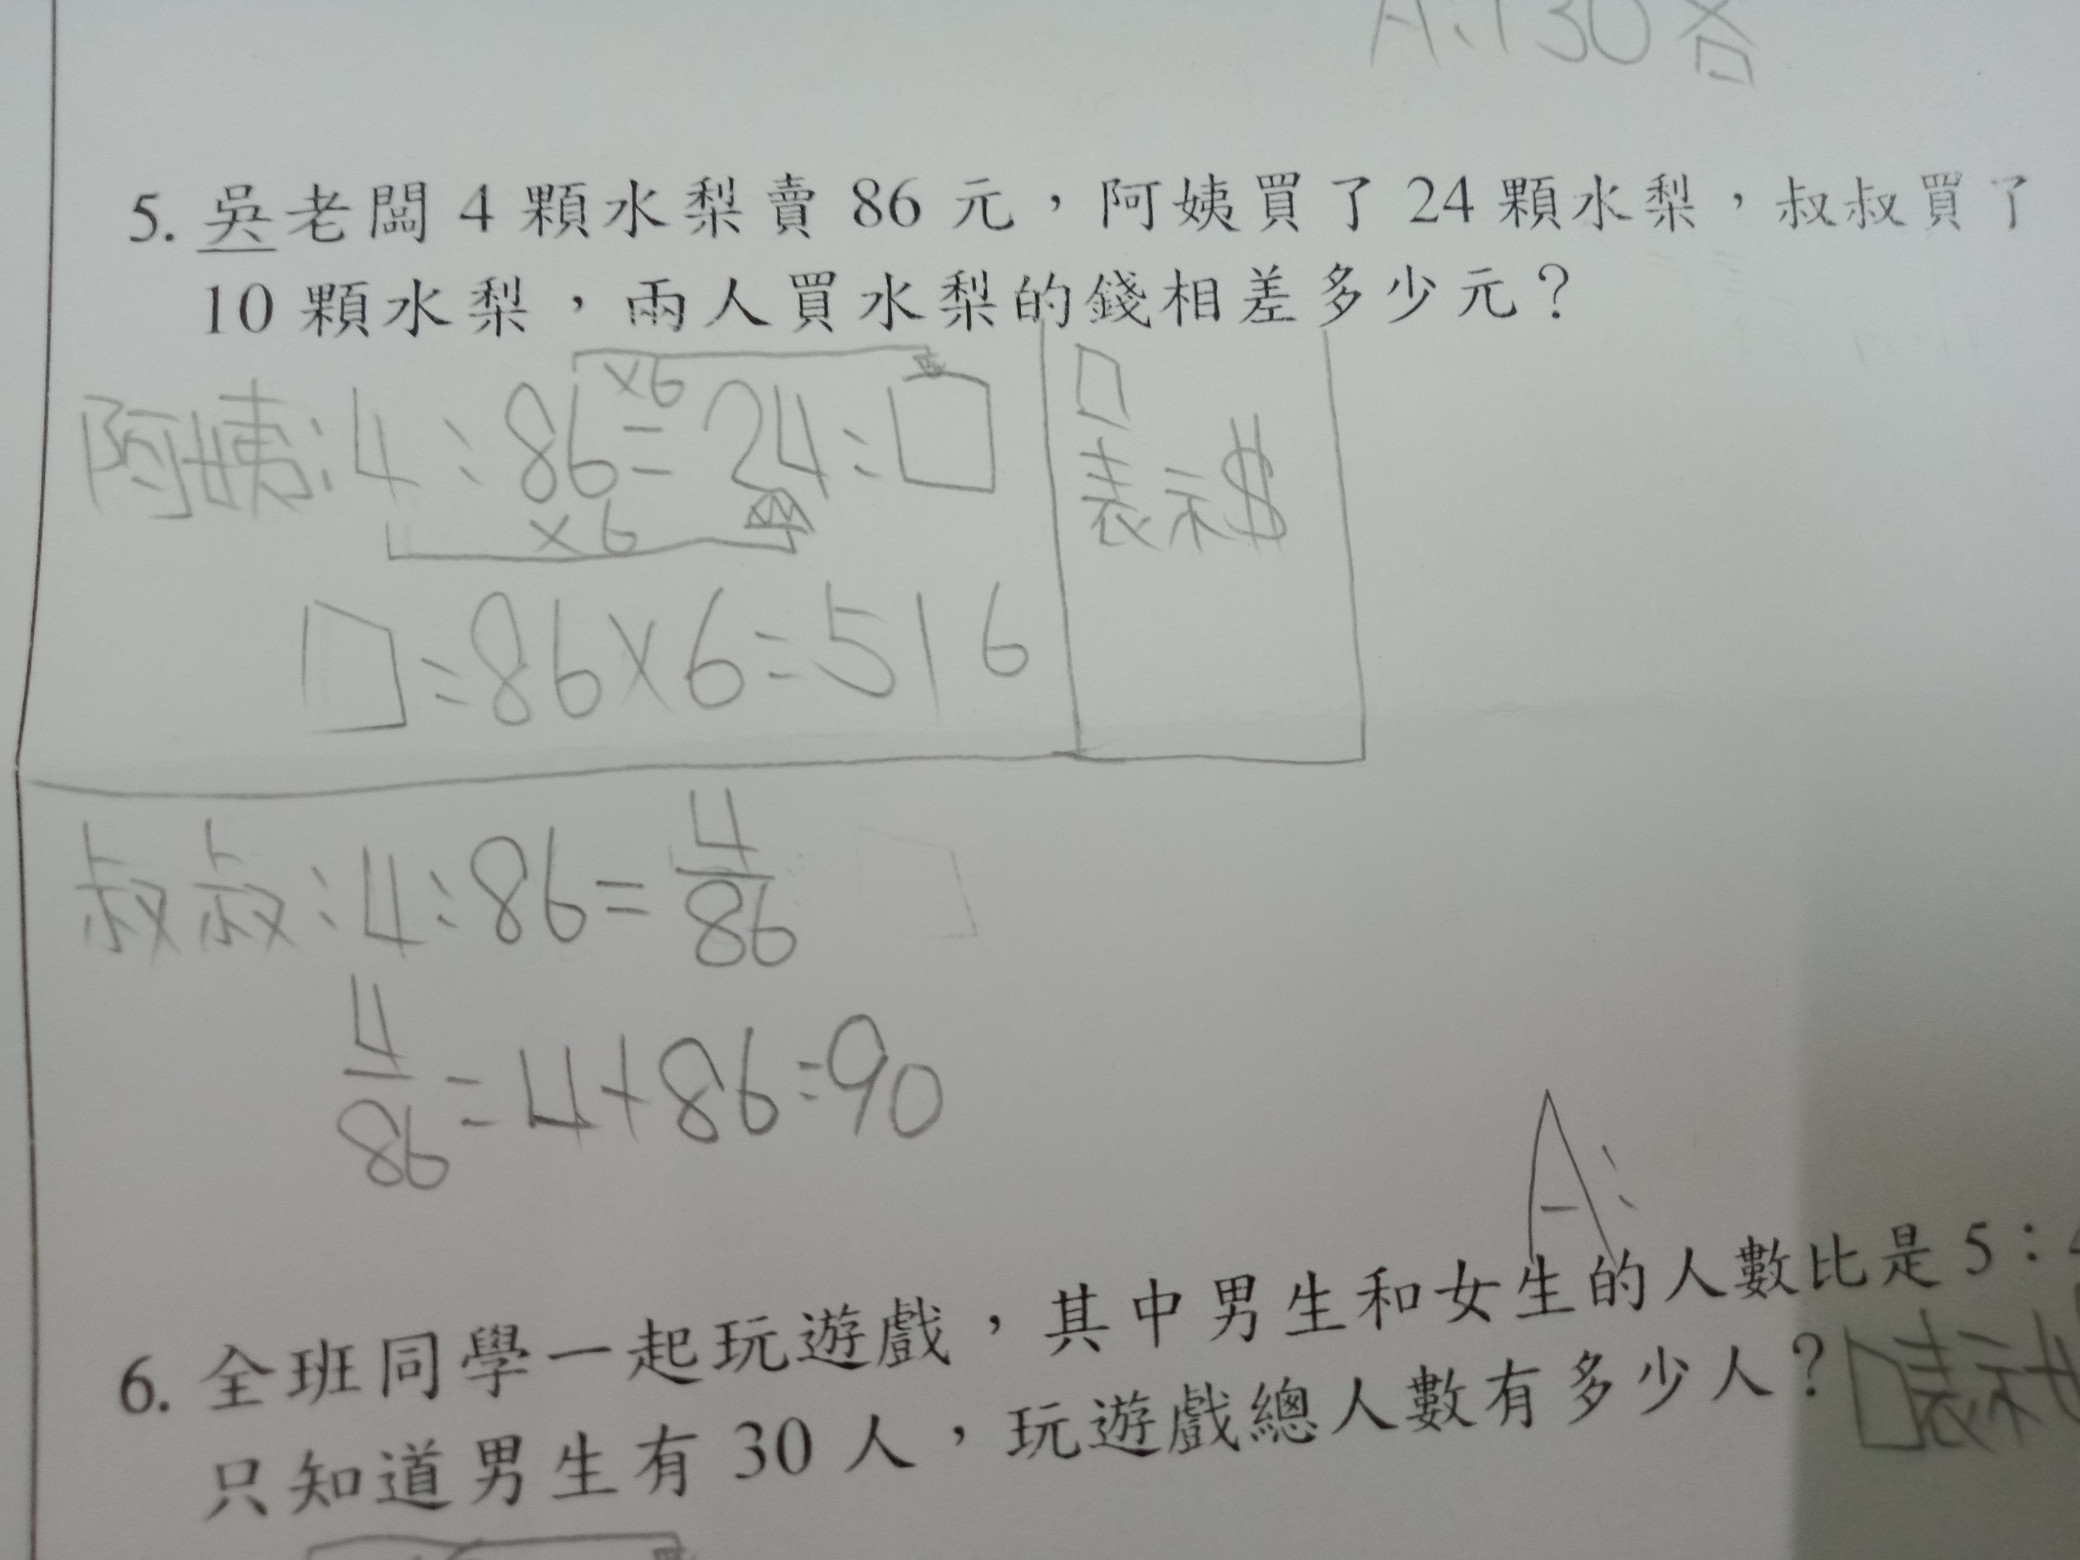 A:130答
5. 吳老闆 4 顆水梨賣 86 元，阿姨買了 24 顆水梨，叔叔買了
10 顆水梨，兩人買水梨的錢相差多少元？
×6
阿姨:4:86=24:□
×6
□=86×6=516
□
表示$
叔叔:4:86=4/86
4/86=4+86=90
A:
6. 全班同學一起玩遊戲，其中男生和女生的人數比是 5：4
只知道男生有 30 人，玩遊戲總人數有多少人？
□表示